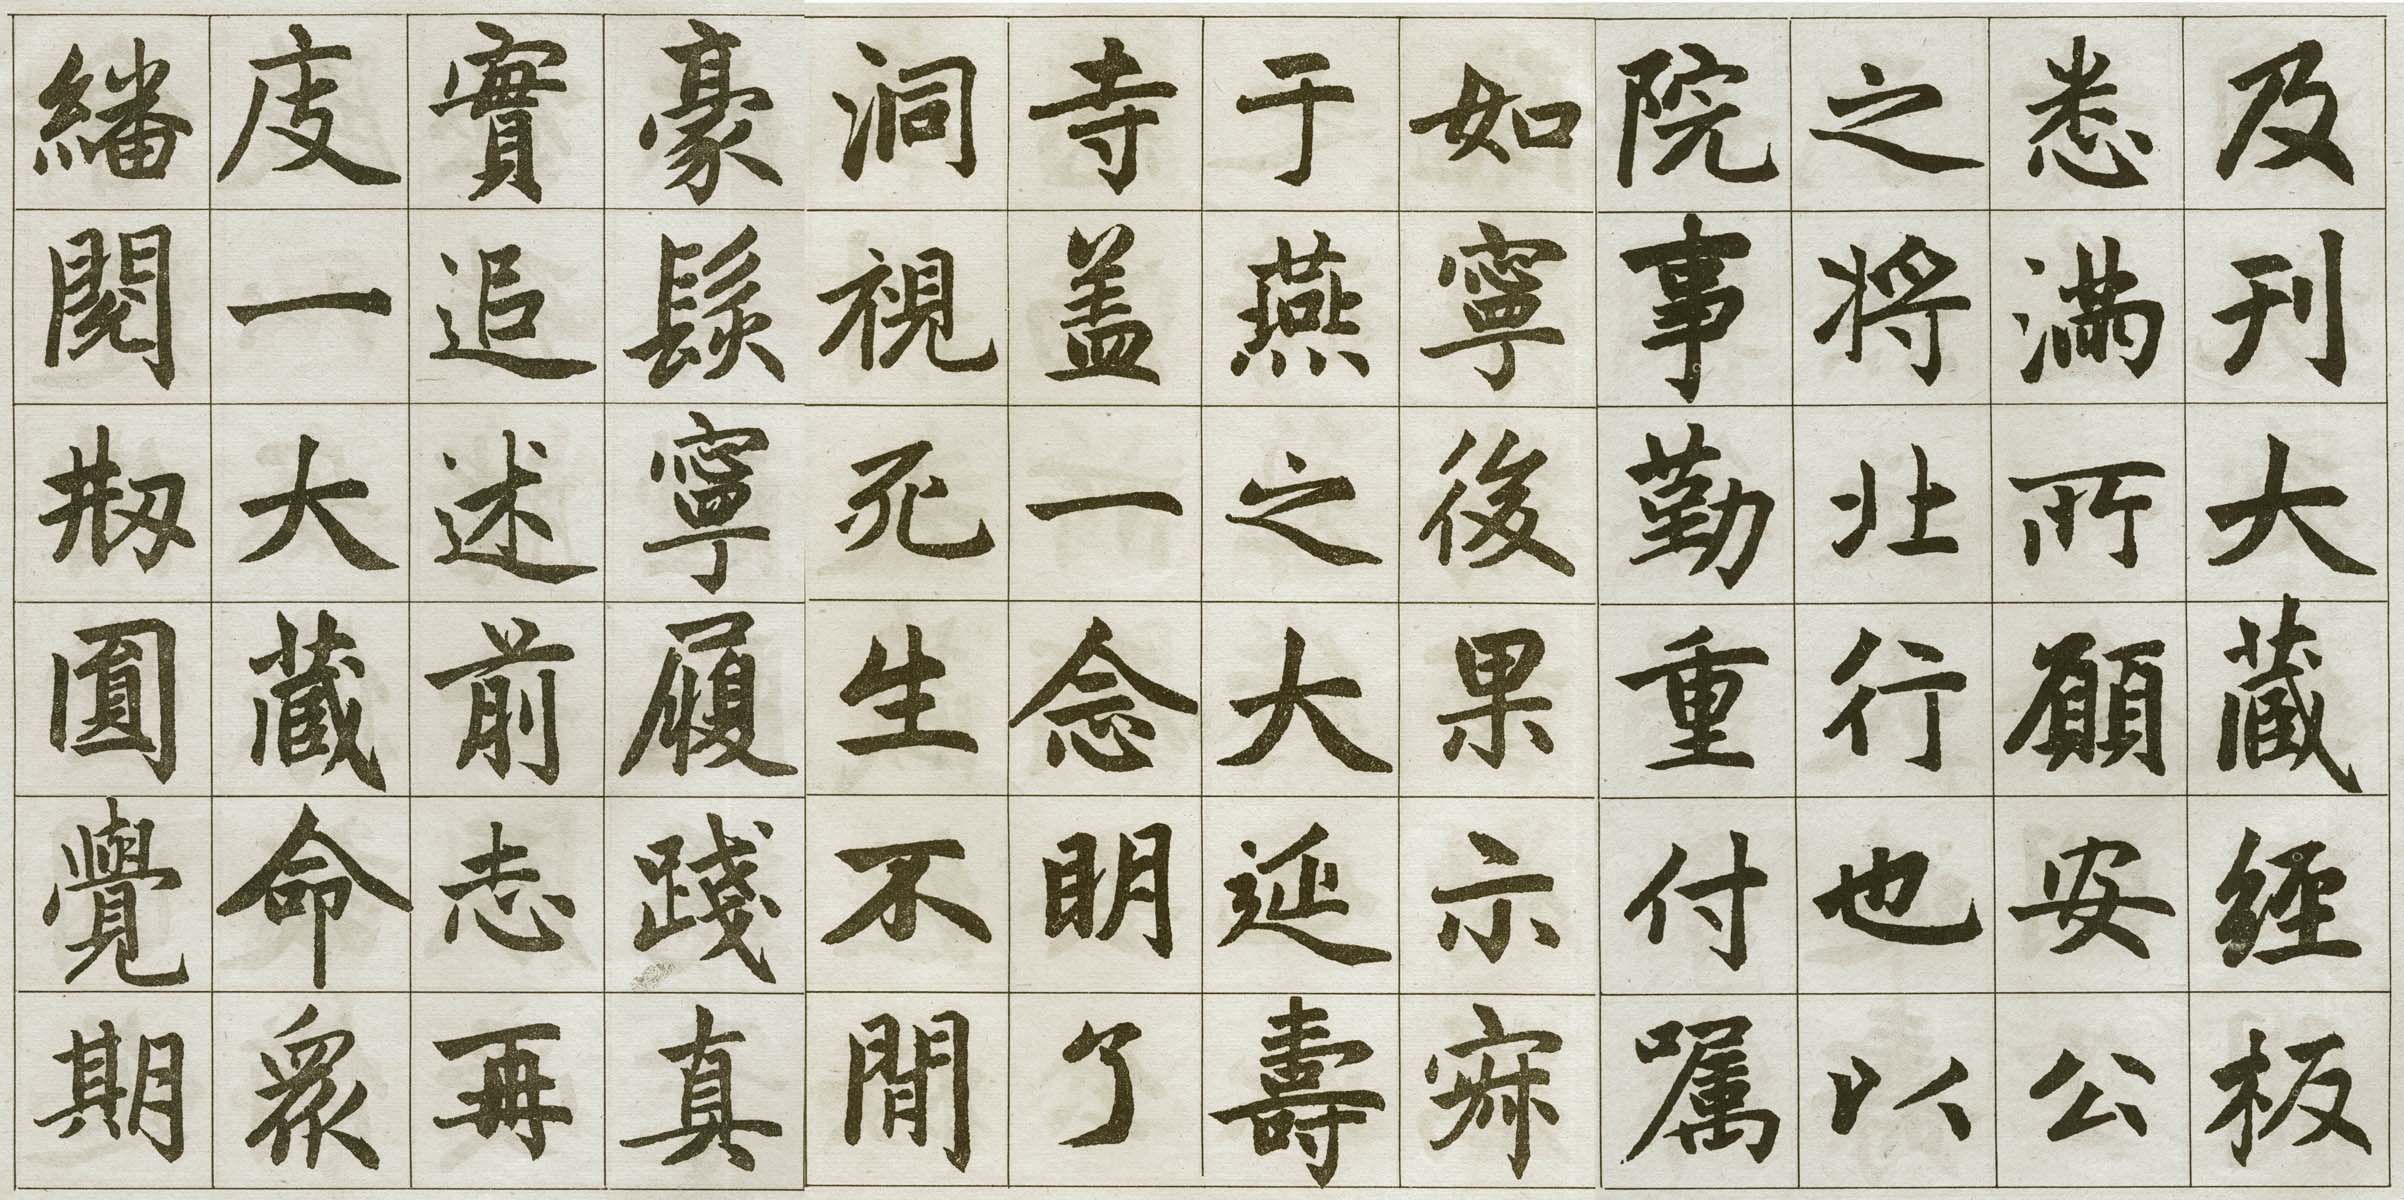 及刊大藏經板
悉滿所願安公
之將北行也以
院事勤重付囑
如寧後果示寂
于燕之大延壽
寺盖一念明了
洞視死生不間
豪髮寧履踐真
實追述前志再
庋一大藏命眾
繙閱刱圓覺期